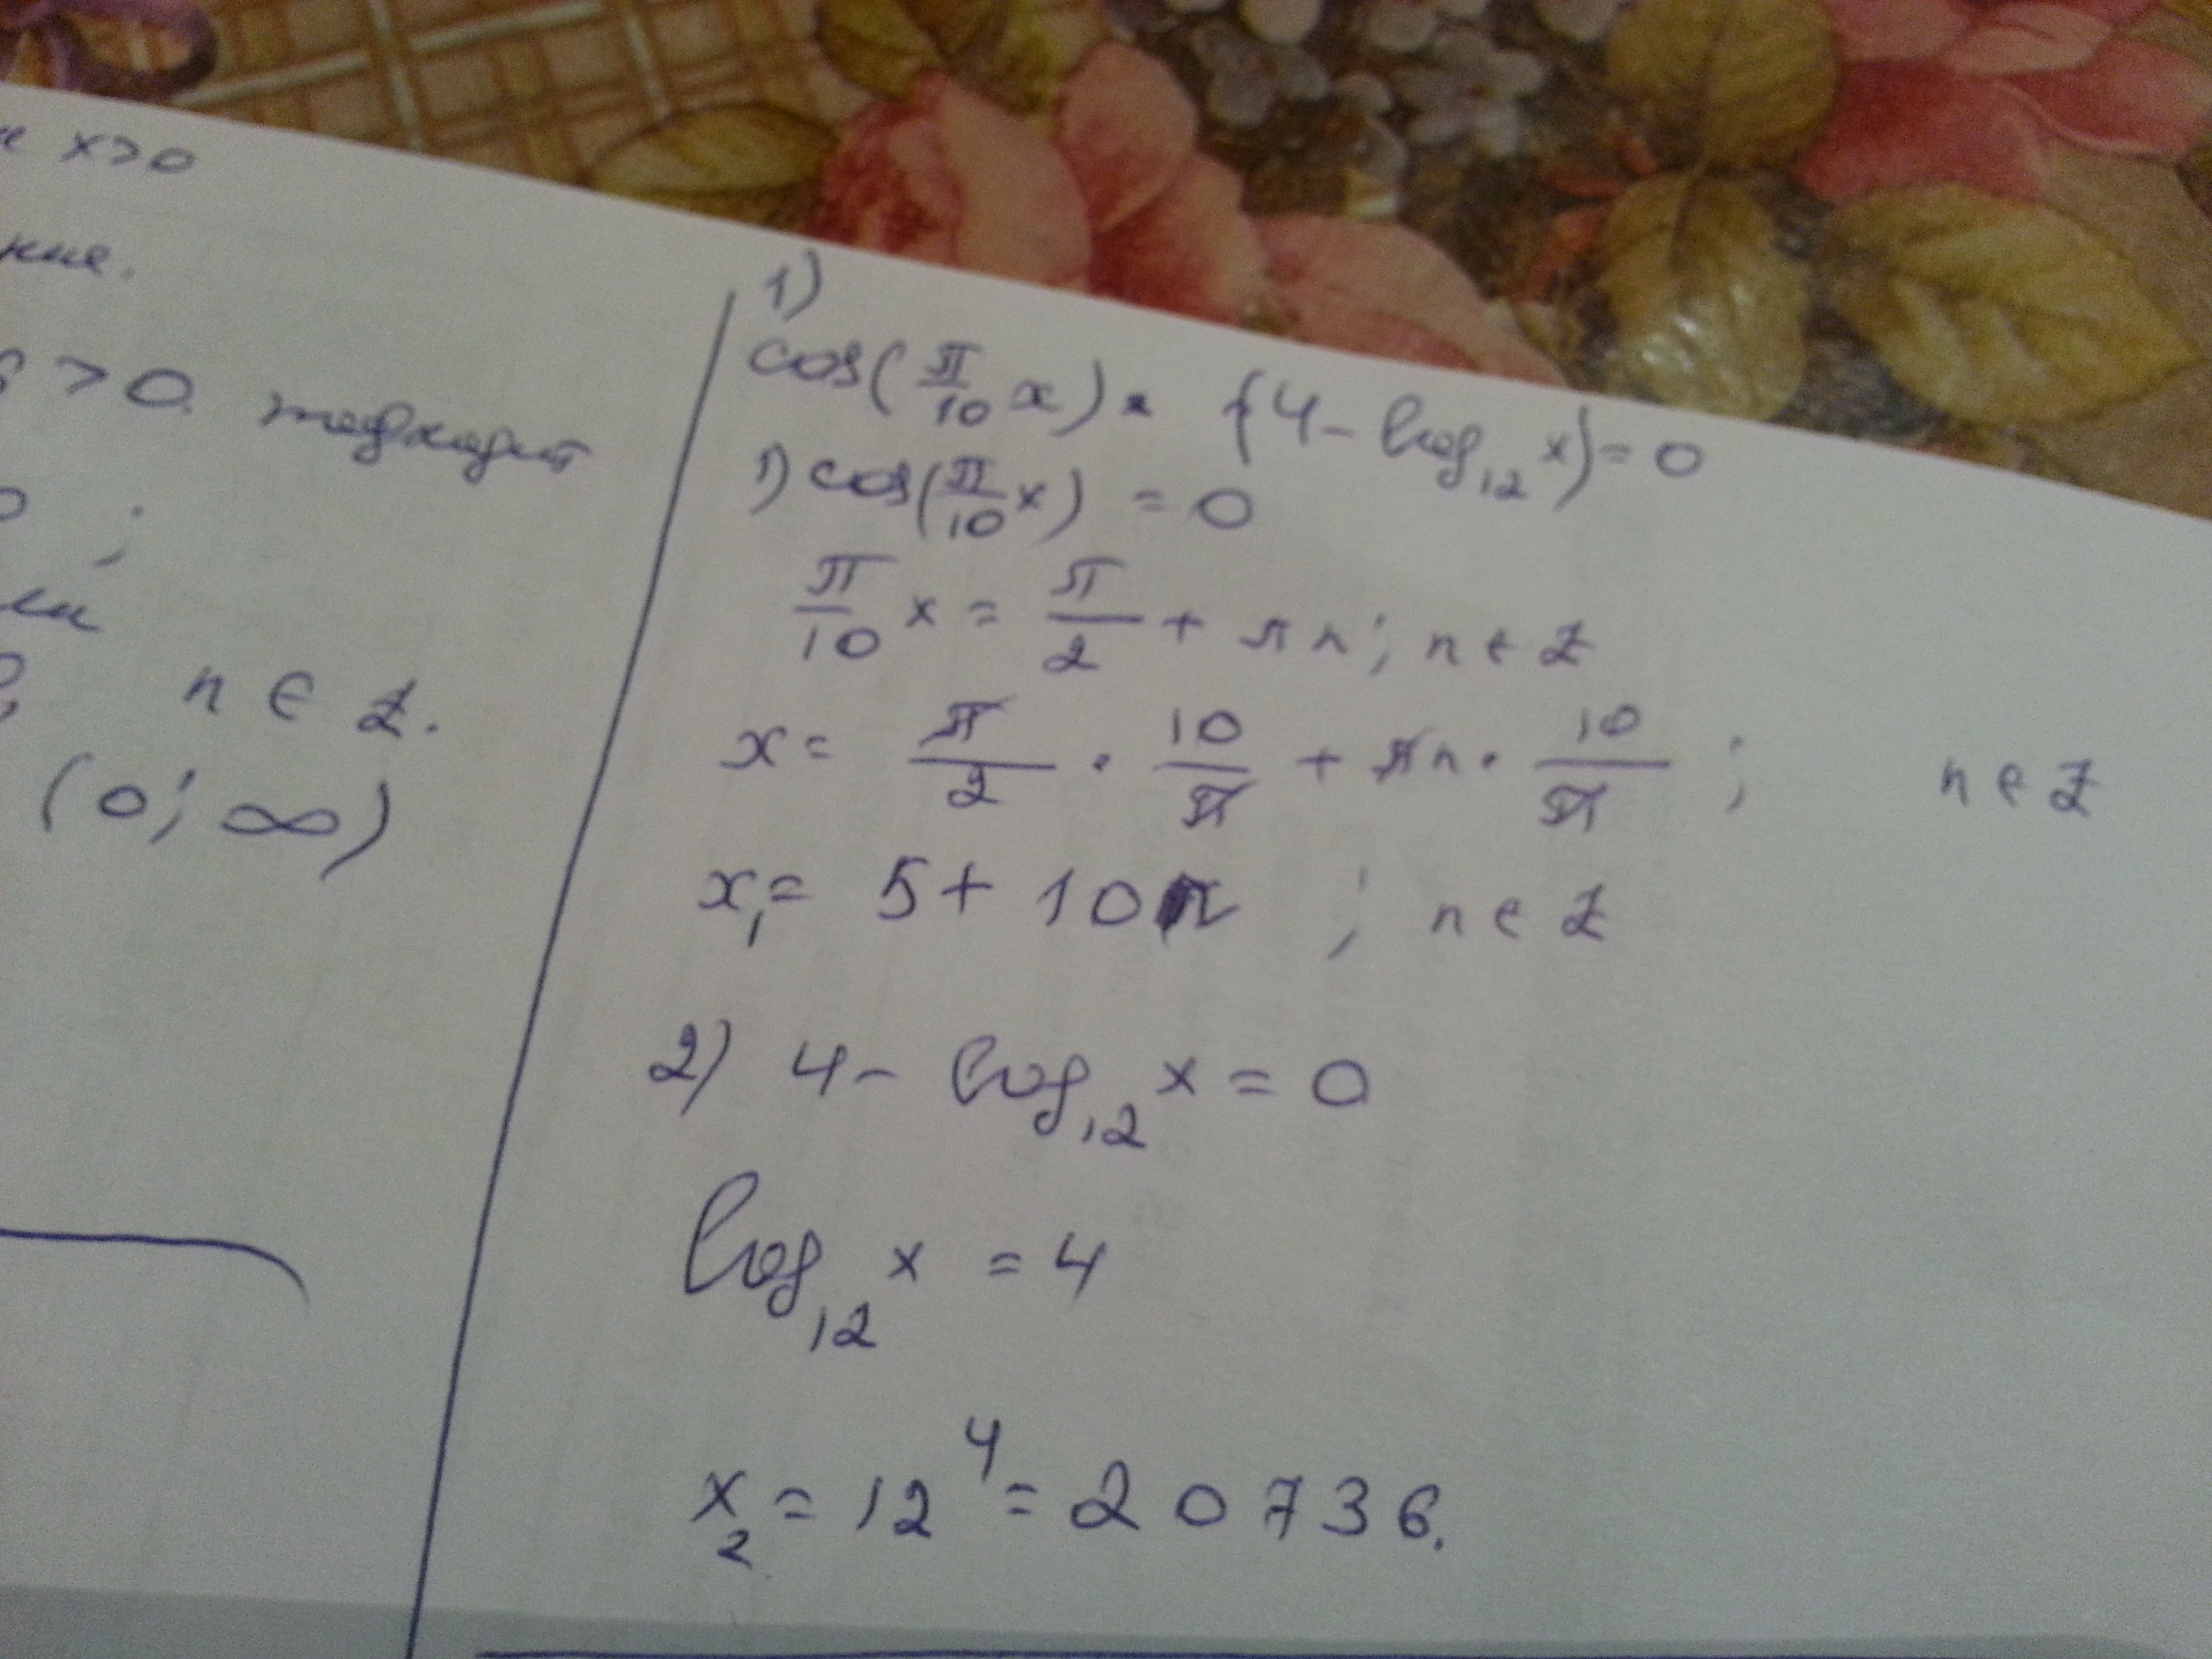 x>0
ния.
>0. подходит
;
ли
n ∈ Z.
(0; ∞)
1)
cos(π/10 x) • (4 - log₁₂ x) = 0
1) cos(π/10 x) = 0
π/10 x = π/2 + πn; n ∈ Z
x = π/2 · 10/π + πn · 10/π ; n ∈ Z
x₁ = 5 + 10n ; n ∈ Z
2) 4 - log₁₂ x = 0
log₁₂ x = 4
x₂ = 12⁴ = 20736.